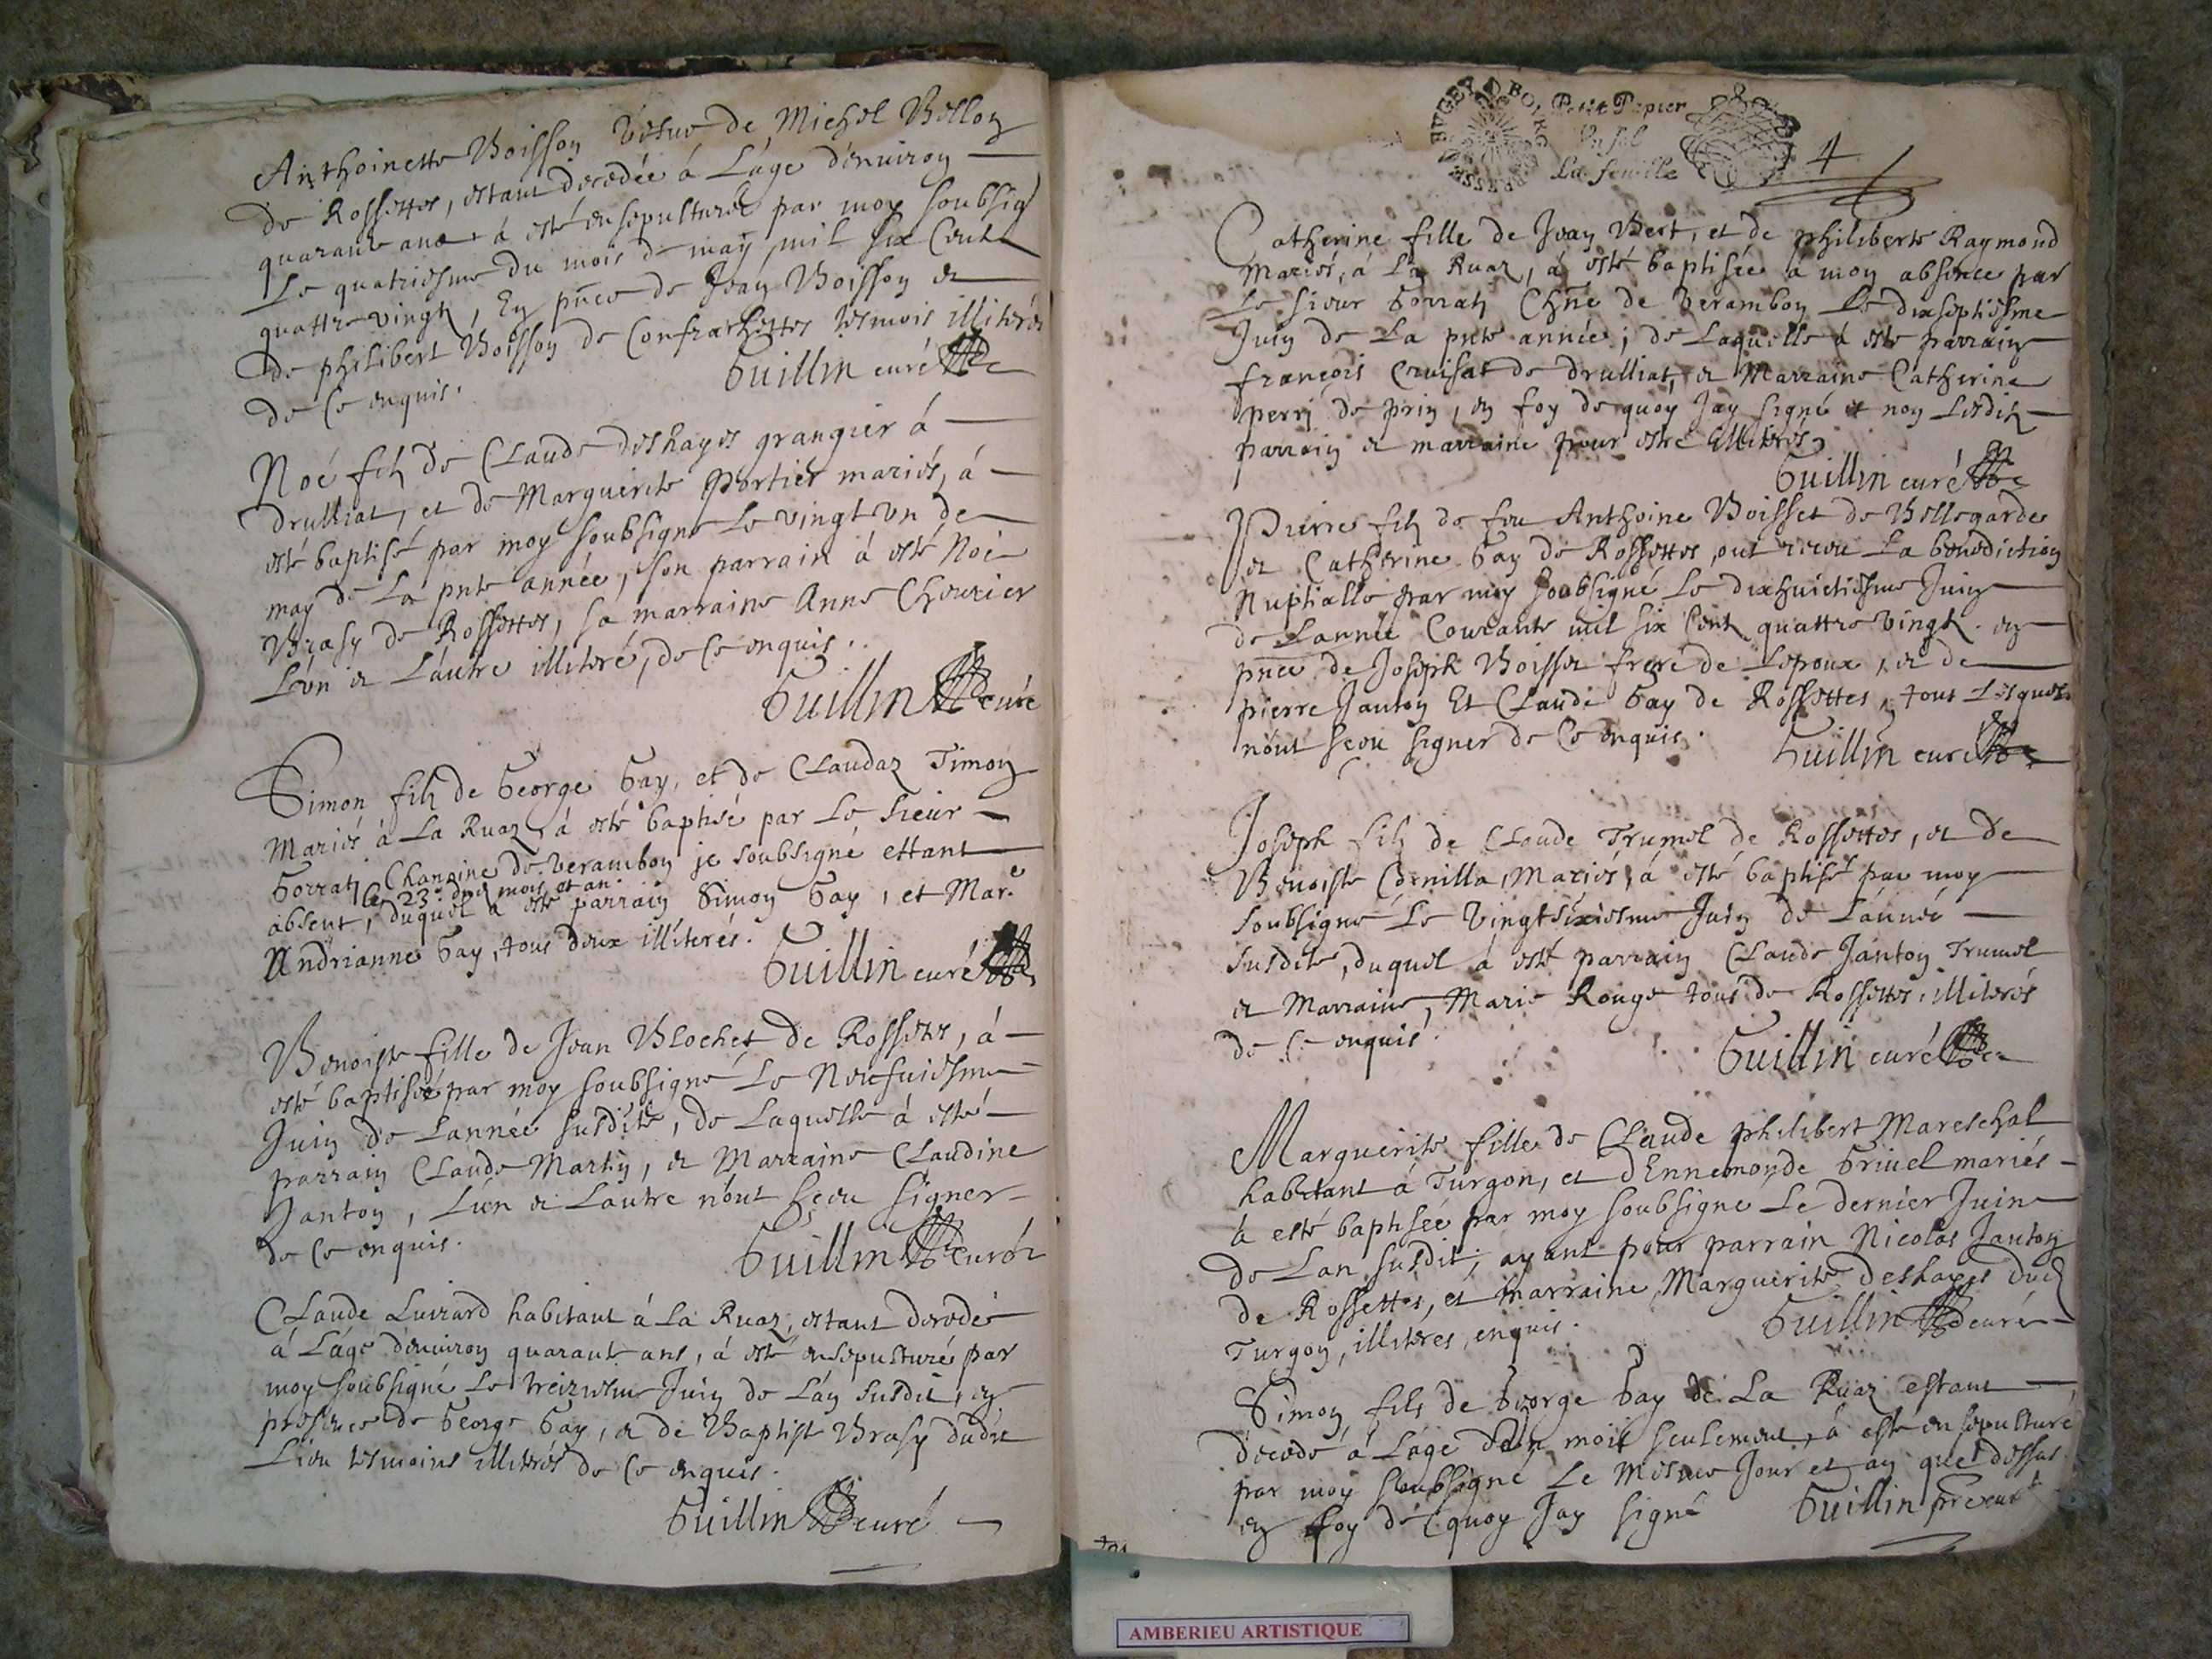 Anthoinette Boisson vesue de Michel Bellon
de Rossettes, estant decedée á Láge dénuiron
quarante ans á esté ensepulturée par moy soubsig
Le quatriesme du mois de may mil six Cents
quattre vingts, En pnce de Jean Boisson et
de philibert Boisson de Confrachettes tesmois illiterés
de Ce enquis.
Guillin curé
Noé fils de Claude deshayes grangier á
drulliat, et de Marguerite Portier mariés, á
esté baptisé par moy soubsigné Le vingt vn de
may de La pnte année, son parrain á esté Noé
Brasy de Rossettes, sa marraine Anne Cheurier
L'vn et Láutre illiteré, de Ce enquis.
Guillin curé
Simon fils de George Gay, et de Claudaz Timon
Mariés á La Ruaz, á esté baptisé par Le sieur
Gorrat Chanoine de verambon je soubsigné estant
le 23e dud mois et an
absent, duquel á esté parrain Simon Gay, et Mare
Andrianne Gay, tous deux illiterés.
Guillin curé
Benoiste fille de Jean Blochet de Rossetes, á
esté baptisée par moy soubsigné Le Neufuiesme
Juin de Lannée susdite, de Laquelle á esté
parrain Claude Martin, et Marraine Claudine
Janton, Lún et Lautre nónt sceu signer
de Ce enquis.
Guillin curé
Claude Luirard habitant á La Ruaz, estant decedé
á Láge dénuiron quarante ans, á esté ensepulturé par
moy soubsigné Le treiziesme Juin de Lán susdit, en
presence de George Gay, et de Baptist Brasy dudit
Lieu tesmoins illiterés de Ce enquis.
Guillin curé
BVGEY BOVRG BRESSE
Petit Papier
Vn sol
La feuille
4
Catherine fille de Jean Vert, et de philiberte Raymond
Mariés, á La Ruaz, á esté baptisée á mon absence par
Le sieur Gorrat Chne de verambon Le dixseptiesme
Juin de La pnte année; de Laquelle á esté parrain
françois Cruisat de drulliat, et Marraine Catherine
perri de prin, en foy de quoy Jay signé et non Lesdits
parrain et marraine pour estre illiterés
Guillin curé
Pierre fils de feu Anthoine Boisset de Bellegarde
et Catherine Gay de Rossettes, ont receu La benediction
Nuptialle par moy soubsigné Le dixhuictiesme Juin
de Lannée Courante mil six Cent quattre vingts. en
pnce de Joseph Boisset frere de Lepoux, et de
pierre Janton Et Claude Gay de Rossettes, tous Lesquels
nónt sceu signer de Ce enquis.
Guillin curé
Joseph fils de Claude Trumel de Rossettes, et de
Benoiste Convilla, Mariés, á esté baptisé par moy
soubsigné Le vingtsixiesme Juin de Lánnée
susdite, duquel á esté parrain Claude Janton Trumel
et Marraine, Marie Rouge tous de Rossettes, illiterés
de Ce enquis.
Guillin curé
Marguerite fille de Claude philibert Mareschal
habitant á Turgon, et d'Ennemonde Griuel mariés
á esté baptisée par moy soubsigné Le dernier Juin
de Lan susdit; ayant pour parrain Nicolas Janton
de Rossettes, et marraine Marguerite deshayes dud
Turgon, illiteres, enquis.
Guillin curé
Simon fils de George Gay de La Ruaz estant
decedé á Láge dún mois seulement, á esté ensepulturé
par moy soubsigné Le Mesme Jour et an que dessus.
en foy de quoy Jay signé
Guillin
AMBERIEU ARTISTIQUE